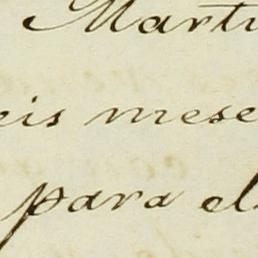 Marti
eis mese
para el